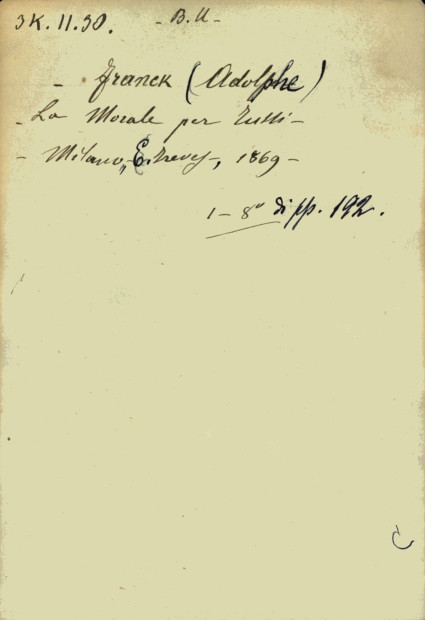 3K.11.30. - B.U -
- Franck (Adolphe)
- La Morale per Tutti -
- Milano, E. Treves, 1869 -
1 - 8° di pp. 192.
C